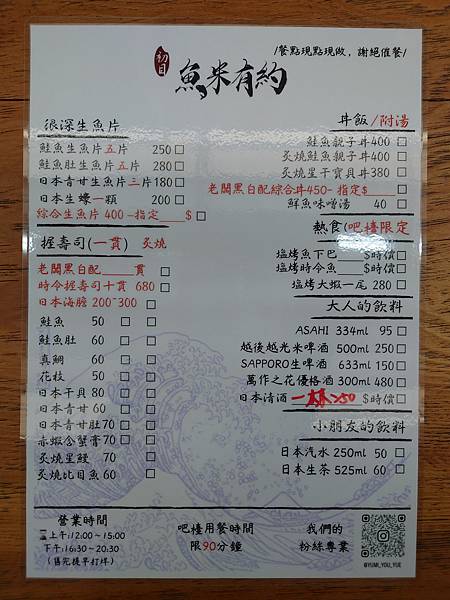 /餐點現點現做，謝絕催餐/
初目
魚米有約
很深生魚片
鮭魚生魚片五片 250
鮭魚肚生魚片五片 280
日本青甘生魚片三片 180
日本生蠔一顆 200
綜合生魚片 400-指定____$
握壽司(一貫) 炙燒
老闆黑白配____貫
時令握壽司十貫 680
日本海膽 200~300
鮭魚 50
鮭魚肚 60
真鯛 60
花枝 50
日本干貝 80
日本青甘 60
日本青甘肚 70
赤蝦含蟹膏 70
炙燒星鰻 70
炙燒比目魚 60
丼飯/附湯
鮭魚親子丼 400
炙燒鮭魚親子丼 400
炙燒星干寶丼 380
老闆黑白配綜合丼 450-指定$____
鮮魚味噌湯 40
熱食(吧檯限定
塩烤魚下巴____$時價
塩烤時令魚____$時價
塩烤大蝦一尾 280
大人的飲料
ASAHI 334ml 95
越後越光米啤酒 500ml 250
SAPPORO生啤酒 633ml 150
萬作之花優格酒 300ml 480
日本清酒 一杯250 $時價
小朋友的飲料
日本汽水 250ml 50
日本生茶 525ml 60
營業時間
上午:12:00~15:00
下午:16:30~20:30
(售完提早打烊)
吧檯用餐時間
限90分鐘
我們的
粉絲專業
@YUMI_YOU_YUE